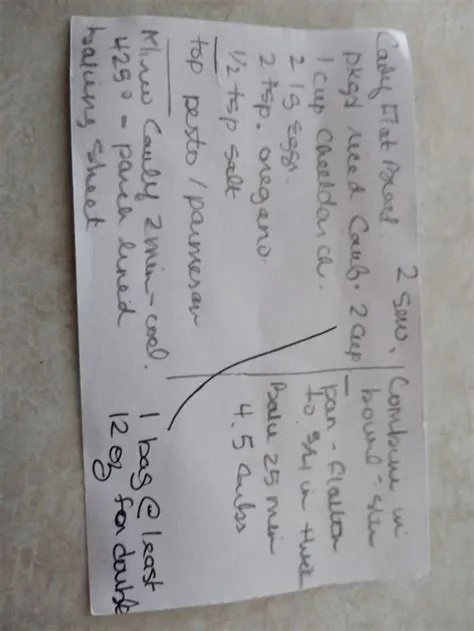 Cauly Flat Bread 2 serv.
pkgs riced Caul. 2 cup
1 cup cheddar ch.
2 lg eggs.
2 tsp. oregano
1/2 tsp salt
top pesto / parmesan
Micro Cauly 2 min - cool.
425° = parch lined
baking sheet
Combine in
bowl - stir
pan - flatten
to 3/4 in thick
Bake 25 min
4.5 carbs
1 bag @ least
12 oz for double